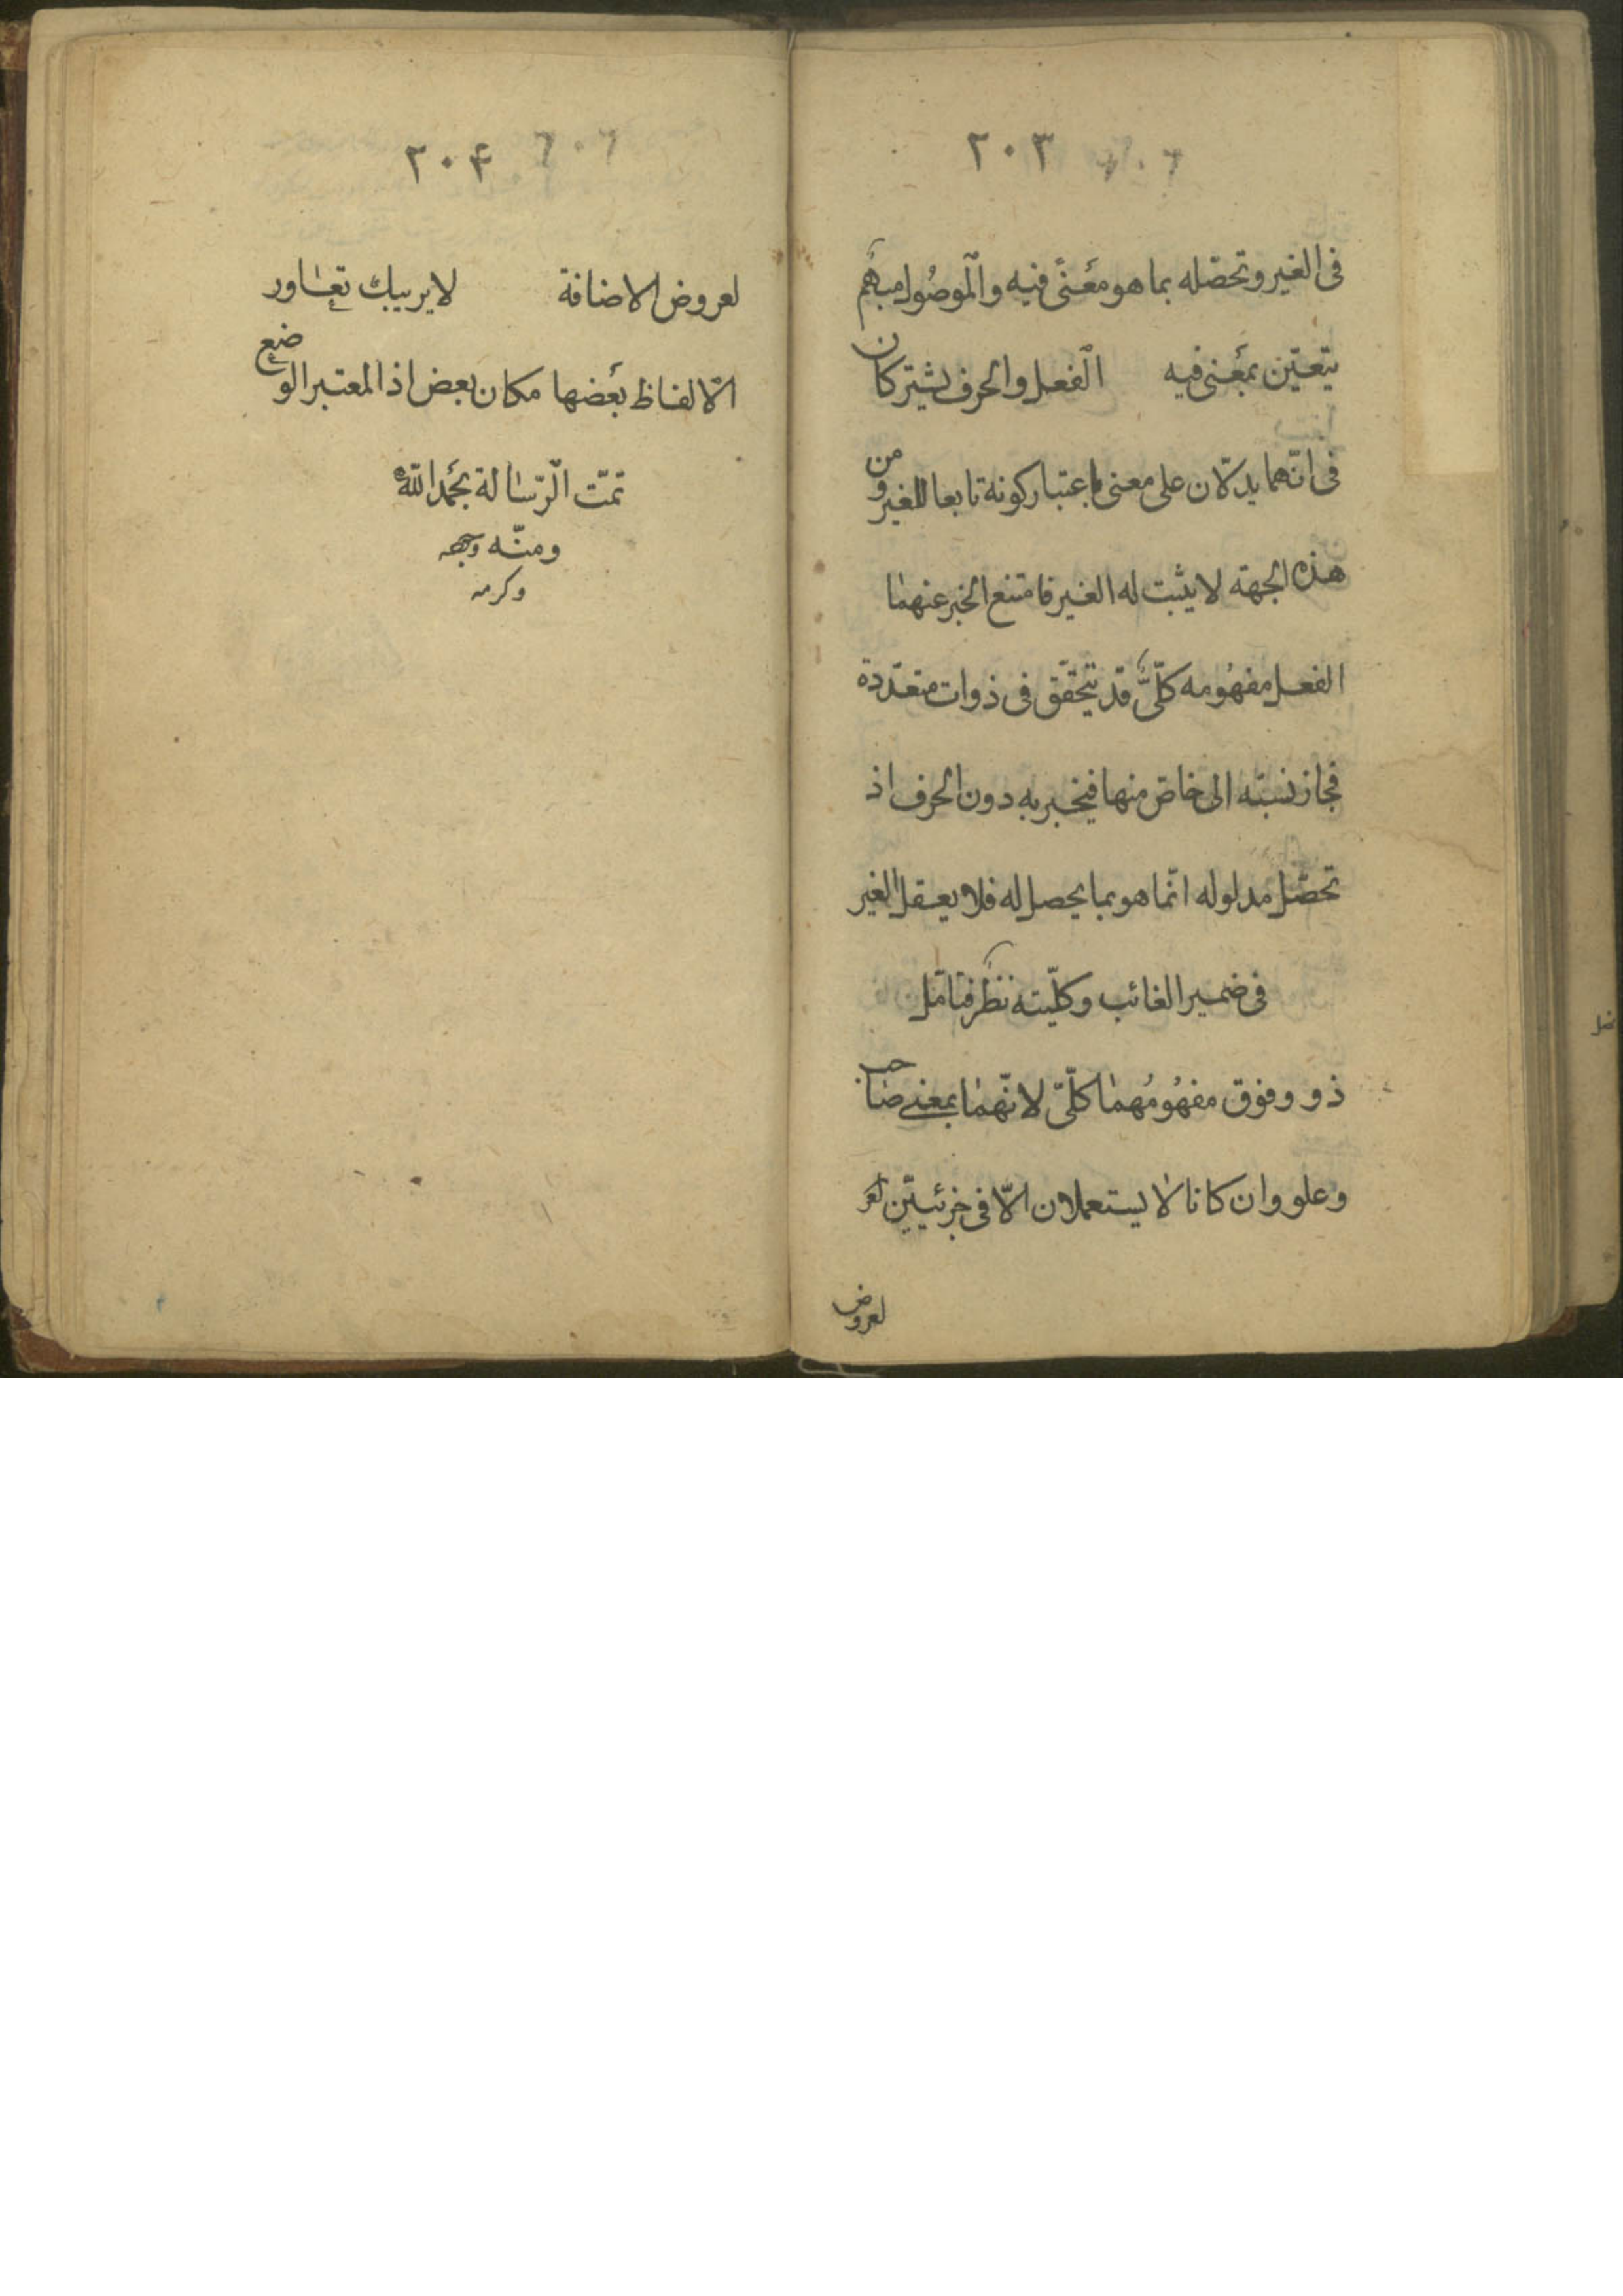 ٢٠٣
فى الغير وتحصّله بما هو معنًى فيه والموصُول مبهَم
يتعيّن بمعنى فيه الفعل والحرف يشتركان
فى انّهما يدلّان على معنى باعتبار كونه تابعا للغير ومن
هذه الجهة لا يثبت له الغير فامتنع الخبر عنهما
الفعل مفهُومه كلّىٌّ قد يتحقّق فى ذوات متعدّدة
فجاز نسبته الى خاصّ منها فيخبر به دون الحرف اذ
تحصّل مدلوله انّما هو بما يحصل له فلا يعقل الغير
فى ضمير الغائب وكلّيته نظر فتامّل
ذو وفوق مفهُومُهما كلّىّ لانّهما بمعنى صاحب
وعلو وان كانا لا يستعملان الّا فى جزئيّين لعر
لعروض
٢٠۴
لعروض الاضافة لا يريبك تعاور
الالفاظ بعَضها مكان بعض اذ المعتبر الوضع
تمّت الرّسالة بحَمد اللّٰه
ومنّه
وكرمه